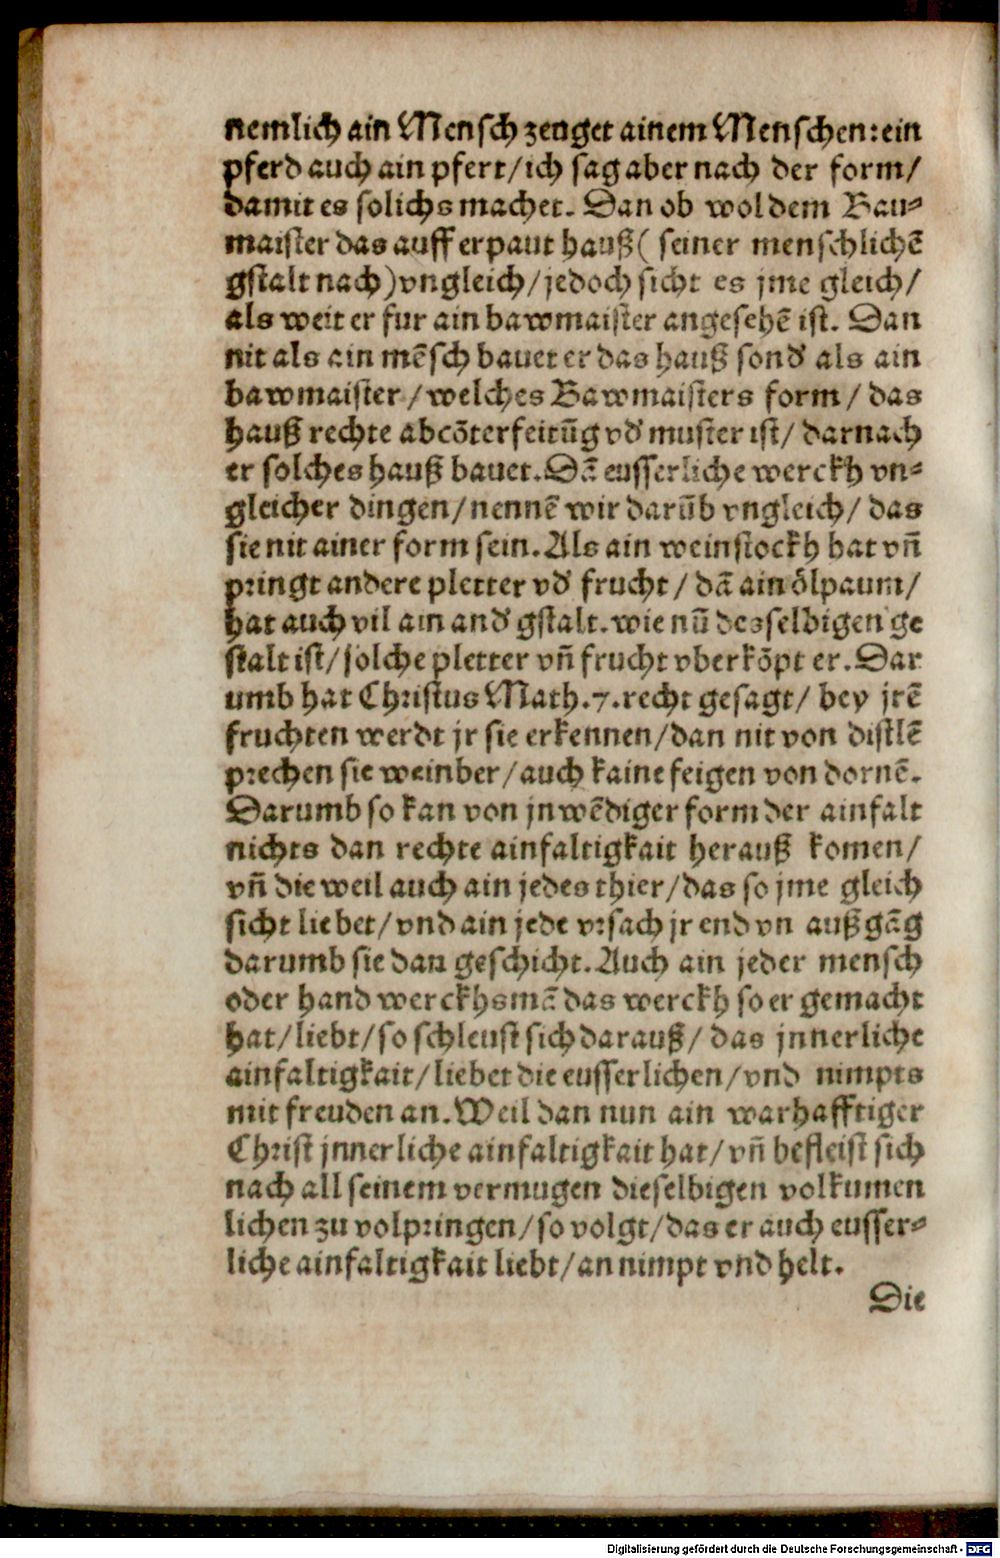 nemlich ain Mensch zeuget ainem Menschen: ein
pferd auch ain pfert/ ich sag aber nach der form/
damit es solichs machet. Dan ob wol dem Bau⸗
maister das auff erpaut hauß ( seiner menschlichẽ
gstalt nach) vngleich/ jedoch sicht es jme gleich/
als weit er fur ain bawmaister angesehẽ ist. Dan
nit als ain mẽsch bauet er das hauß sond' als ain
bawmaister/ welches Bawmaisters form/ das
hauß rechte abcõterfeitũg vd' muster ist/ darnach
er solches hauß bauet. Dã eusserliche werckh vn⸗
gleicher dingen/ nennẽ wir darũb vngleich/ das
sie nit ainer form sein. Als ain weinstockh hat vñ
pringt andere pletter vd' frucht/ dã ain ölpaum/
hat auch vil ain and' gstalt. wie nũ desselbigen ge
stalt ist/ solche pletter vñ frucht vberkõpt er. Dar
umb hat Christus Math. 7. recht gesagt/ bey jrẽ
fruchten werdt jr sie erkennen/ dan nit von distlẽ
prechen sie weinber/ auch kaine feigen von dornẽ.
Darumb so kan von jnwẽdiger form der ainfalt
nichts dan rechte ainfaltigkait herauß komen/
vñ die weil auch ain jedes thier/ das so jme gleich
sicht liebet/ vnd ain jede vrsach jr end vn außgãg
darumb sie dan geschicht. Auch ain jeder mensch
oder handwerckhsmã das werckh so er gemacht
hat/ liebt/ so schleust sich darauß/ das jnnerliche
ainfaltigkait/ liebet die eusserlichen/ vnd nimpts
mit freuden an. Weil dan nun ain warhafftiger
Christ jnnerliche ainfaltigkait hat/ vñ befleist sich
nach all seinem vermugen dieselbigen volkumen
lichen zu volpringen/ so volgt/ das er auch eusser⸗
liche ainfaltigkait liebt/ an nimpt vnd helt.
Die
Digitalisierung gefördert durch die Deutsche Forschungsgemeinschaft - DFG